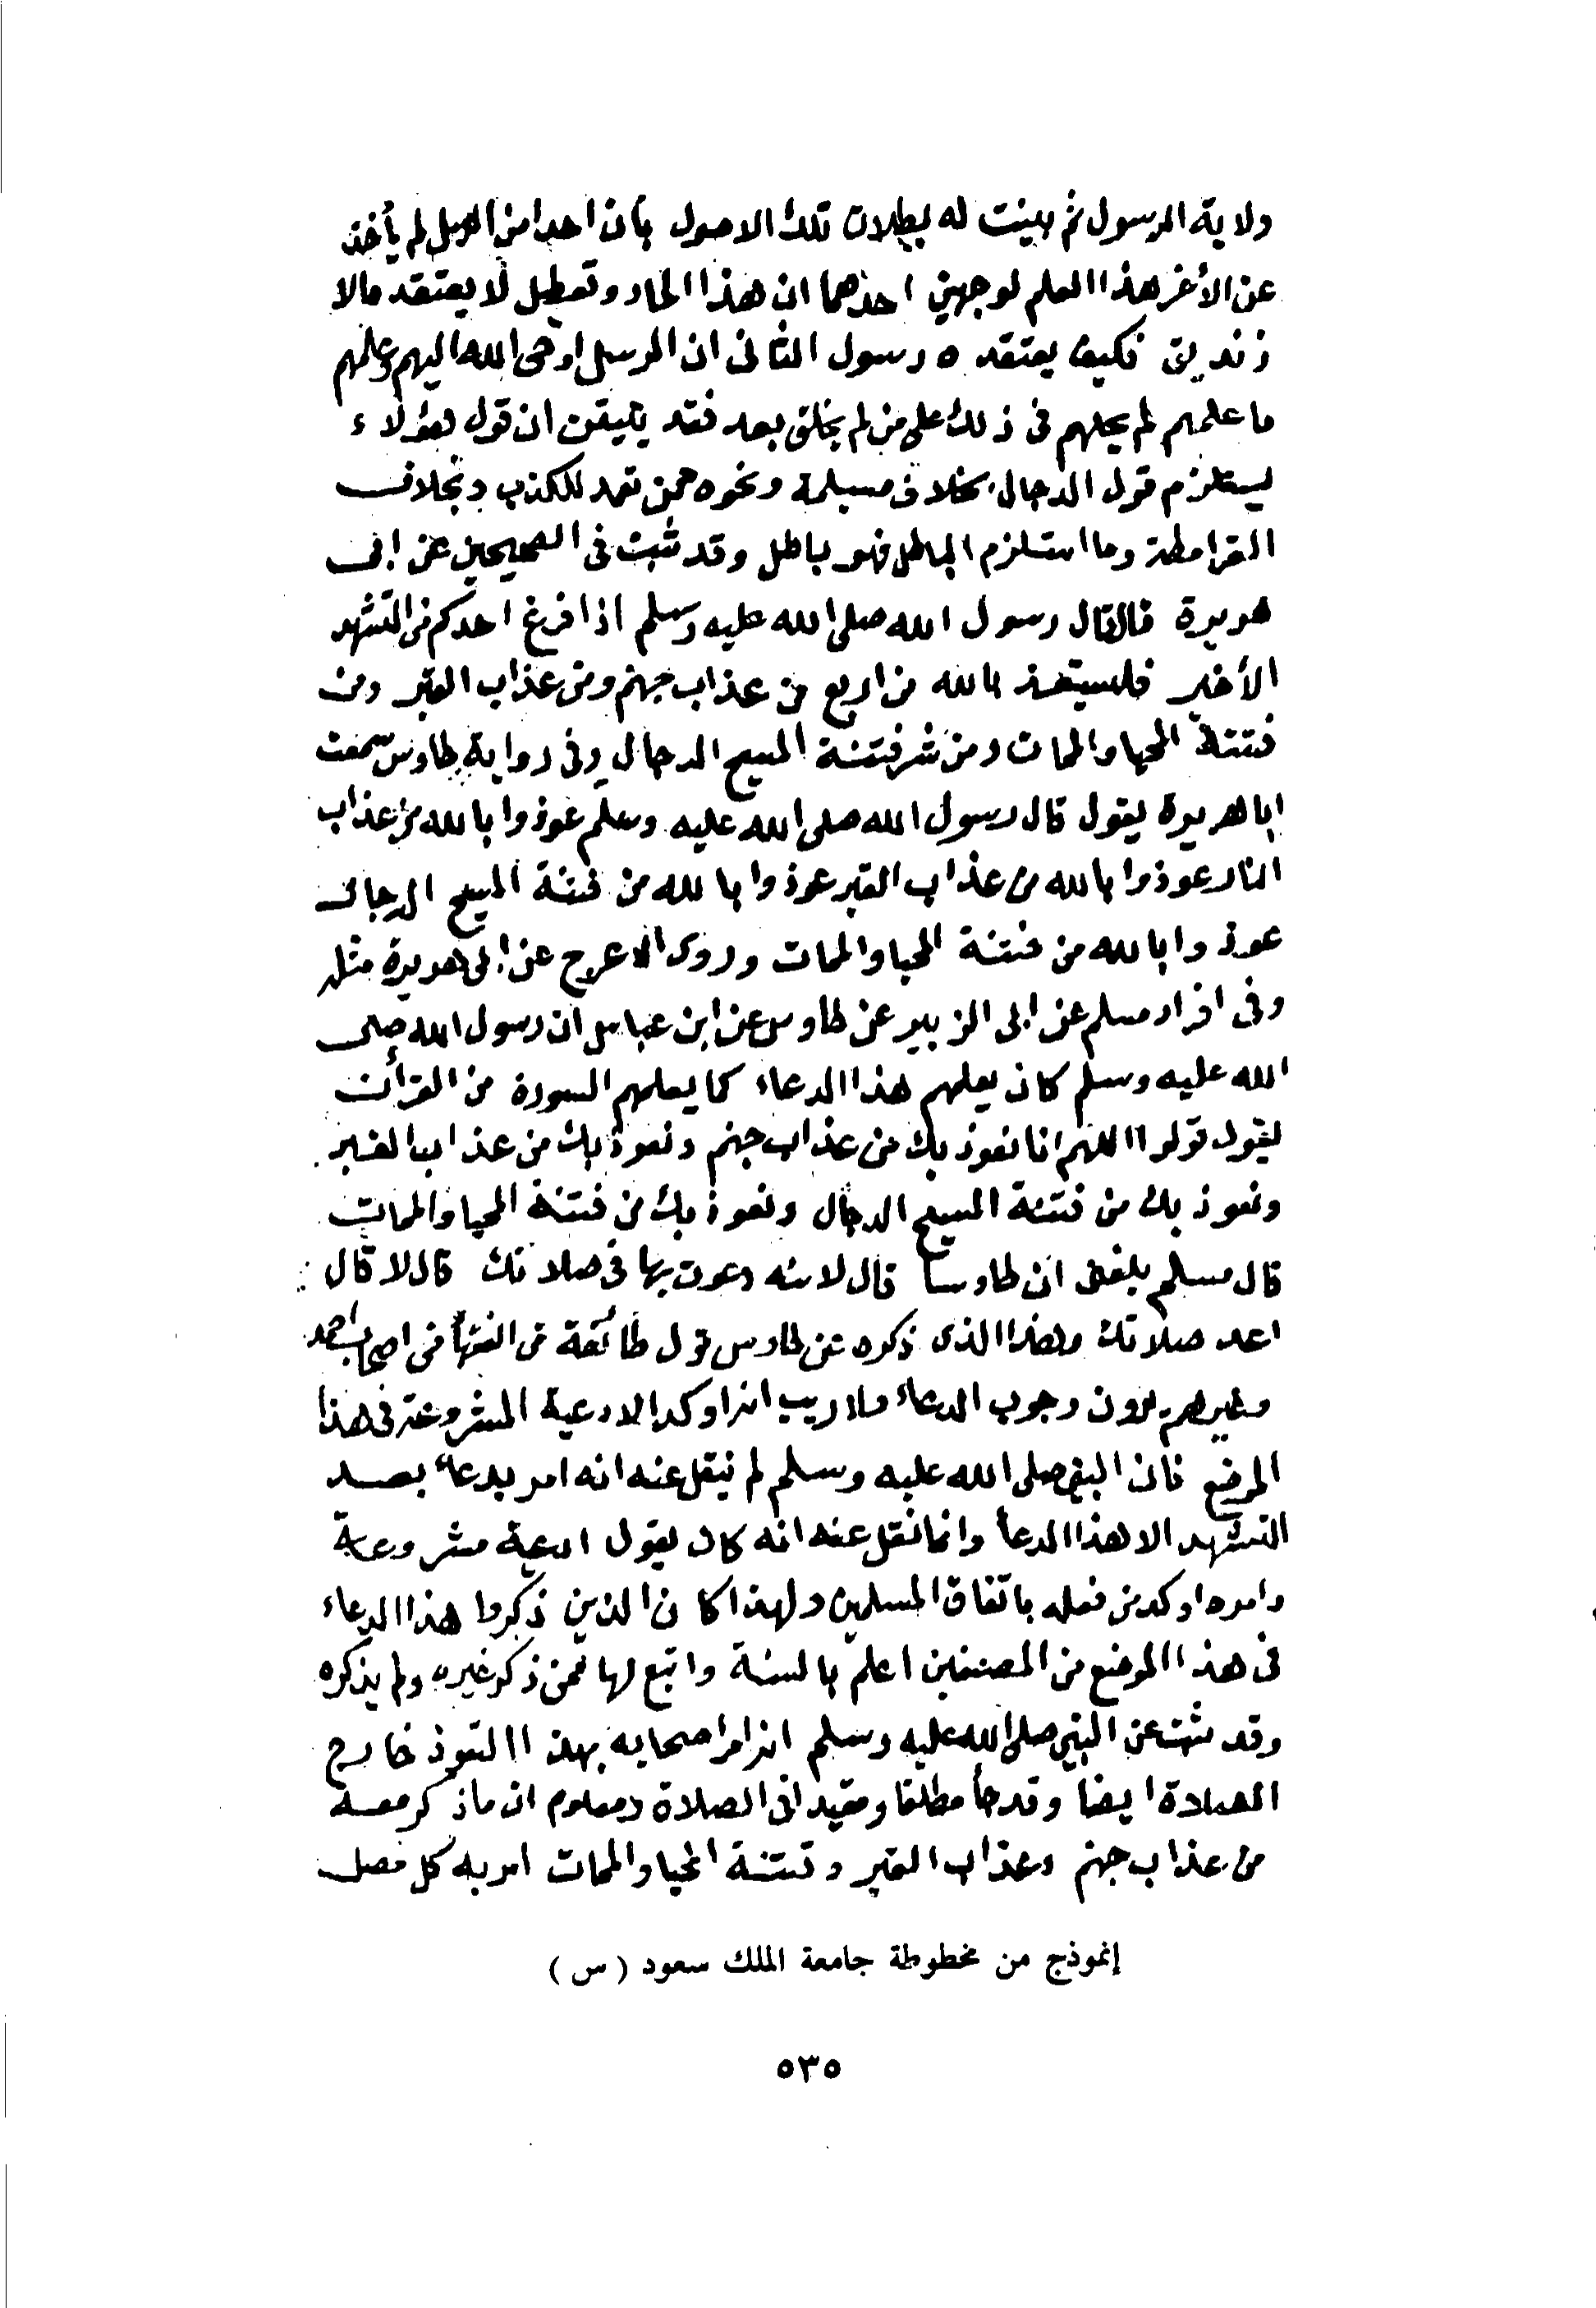 ولاية الرسول ثم بينت له بطلان تلك الاصول بأن احدا من الرسل لم يأخذ
عن الأخر هذا العلم لوجهين احدهما ان هذا الحاد وتعطيل لا يعتقده الا
زنديق فكيف يعتقده رسول الثانى ان الرسل اوحى الله اليهم وعلمهم
ما علمهم لم يحلهم فى ذلك على من لم يخلق بعد فقد يتيقن ان قول هؤلاء
يستلزم قول الدجال بخلاف مسيلمة ونحوه ممن تعمد للكذب وبخلاف
القرامطة وما استلزم الباطل فهو باطل وقد ثبت فى الصحيحين عن ابى
هريرة قال قال رسول الله صلى الله عليه وسلم اذا فرغ احدكم من التشهد
الأخير فليستعذ بالله من اربع من عذاب جهنم ومن عذاب القبر ومن
فتنة المحيا والممات ومن شر فتنة المسيح الدجال وفى رواية طاوس سمعت
ابا هريرة يقول قال رسول الله صلى الله عليه وسلم عوذوا بالله من عذاب
النار عوذوا بالله من عذاب القبر عوذوا بالله من فتنة المسيح الدجال
عوذوا بالله من فتنة المحيا والممات وروى الاعرج عن ابى هريرة مثله
وفى افراد مسلم عن ابى الزبير عن طاوس عن ابن عباس ان رسول الله صلى
الله عليه وسلم كان يعلمهم هذا الدعاء كما يعلمهم السورة من القرأن
يقول قولوا اللهم انا نعوذ بك من عذاب جهنم ونعوذ بك من عذاب القبر
ونعوذ بك من فتنة المسيح الدجال ونعوذ بك من فتنة المحيا والممات
قال مسلم بلغنى ان طاوسا قال لابنه دعوت بها فى صلاتك قال لا قال
اعد صلاتك وهذا الذى ذكره عن طاوس قول طائفة من الفقهأ من اصحاب احمد
وغيرهم يرون وجوب الدعاء ولا ريب انه اوكد الادعية المشروعة فى هذا
الموضع فان النبى صلى الله عليه وسلم لم ينقل عنه انه امر بدعاء بعد
التشهد الا هذا الدعأ وانما نقل عنه انه كان يقول ادعية مشروعة
وامره اوكد من فعله باتفاق المسلمين ولهذا كان الذين ذكروا هذا الدعاء
فى هذا الموضع من المصنفين اعلم بالسنة واتبع لها ممن ذكر غيره ولم يذكره
وقد ثبت عن النبى صلى الله عليه وسلم انه امر اصحابه بهذا التعوذ خارج
الصلاة ايضا وقد جأ مطلقا ومقيدا فى الصلاة ومعلوم ان ما ذكر معه
من عذاب جهنم وعذاب القبر وفتنة المحيا والممات امر به كل مصل
إنموذج من مخطوطة جامعة الملك سعود ( س )
٥٣٥